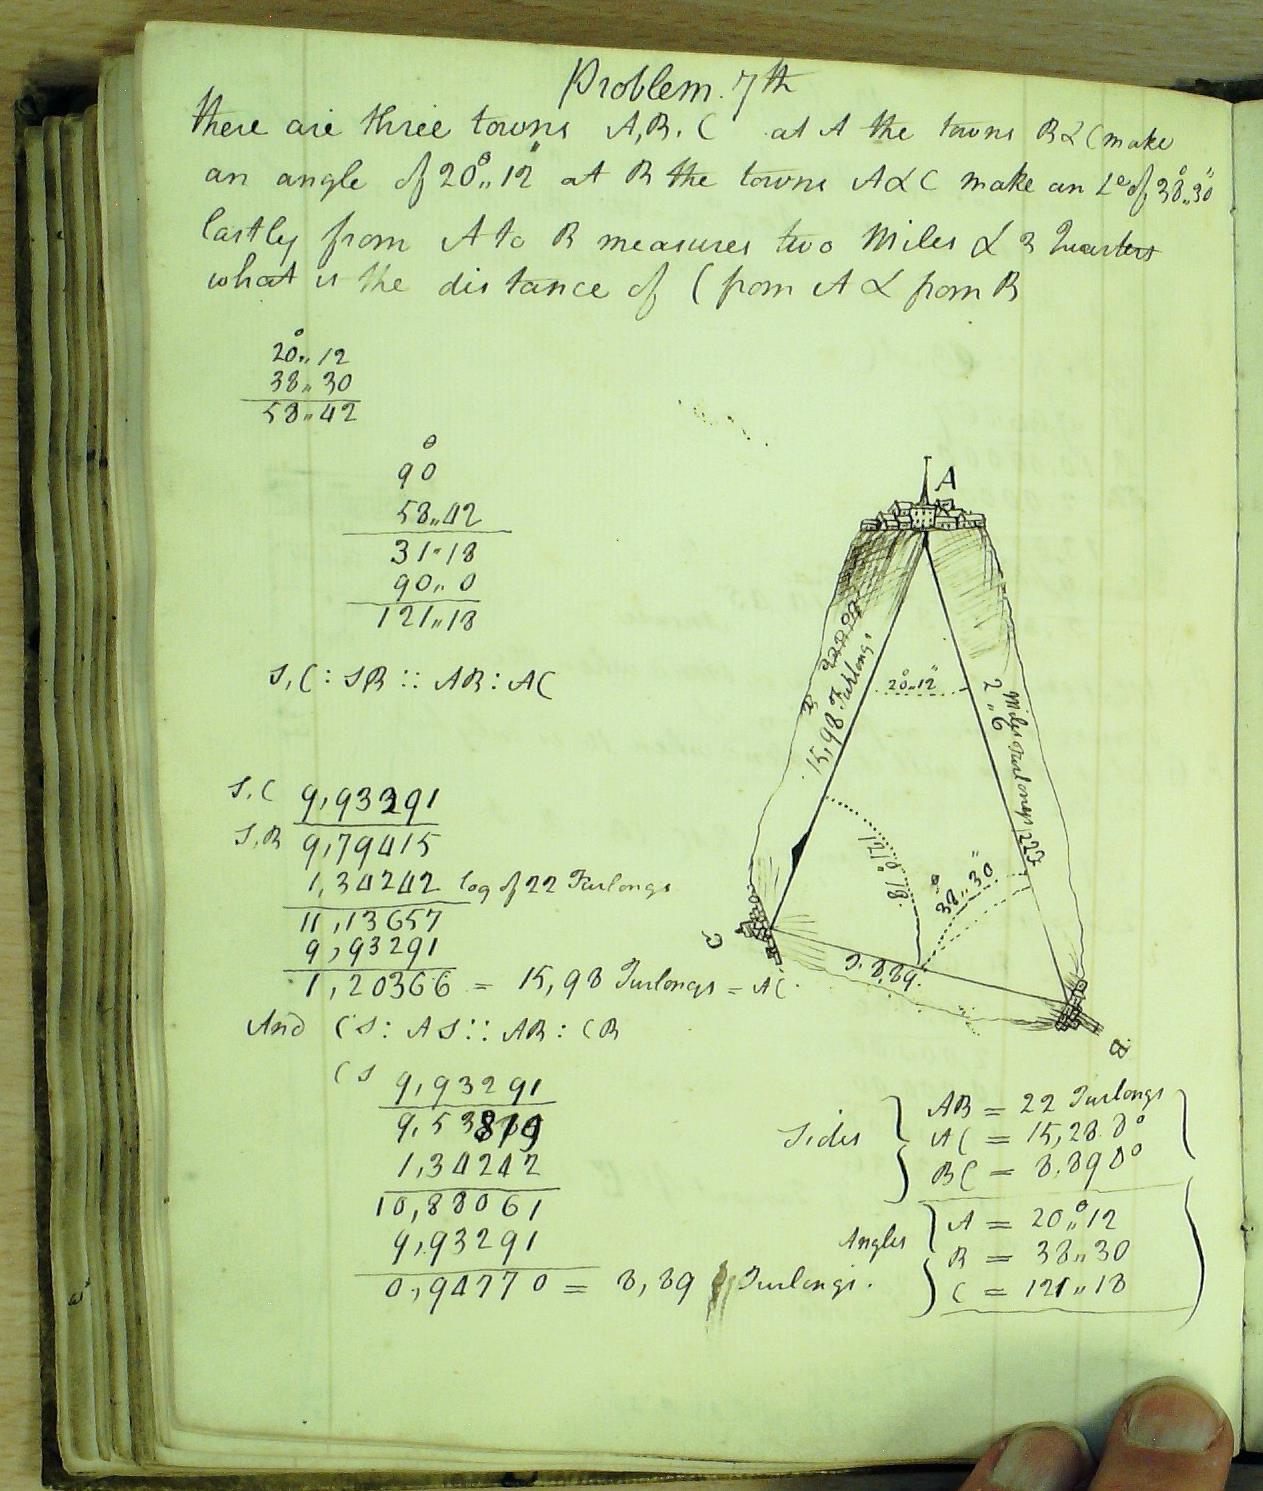 Problem. 7th
there are three towns A, B. C at A the towns B & C make
an angle of 20°,, 12" at B the towns A & C make an Le of 38°,, 30"
lastly from A to B measures two Miles & 3 Quarters
what is the distance of C from A & from B
20°,, 12
38,, 30
58,, 42
90°
58,,42
31,,18
90,, 0
121,,18
S, C : S B :: AB : AC
S, C 9,93291
S, B 9,79415
1,34242 log of 22 Furlongs
11,13657
9,93291
1,20366 = 15,98 Furlongs = AC.
And C S : A S :: AB : CB
C S 9,93291
9,53819
1,34242
10,88061
9,93291
0,94770 = 8,89 Furlongs.
A
15,98 Furlongs
20°,,12"
2 Miles,, 6 Furlongs 22F
121°,, 18.
38°,, 30"
8.8,89.
C
B
Sides
AB = 22 Furlongs
AC = 15,28 Do
BC = 8.89 Do
Angles
A = 20°,, 12
B = 38,, 30
C = 121,, 18